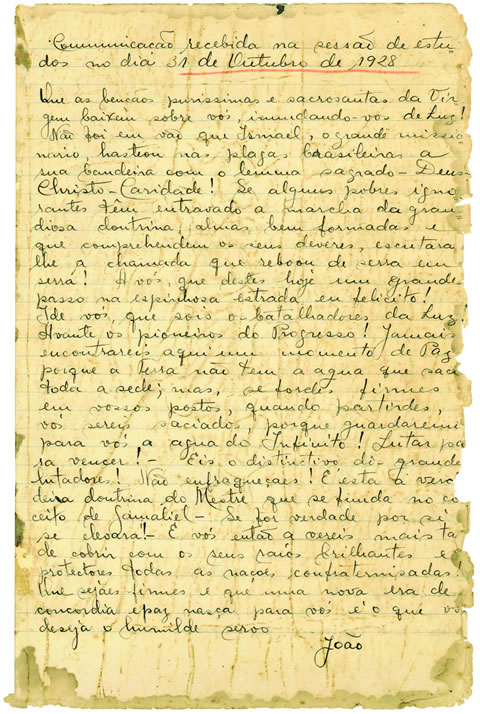 Communicação recebida na sessão de estu
dos no dia 31 de Outubro de 1928
Que as bençãos purissimas e sacrosantas da Vir
gem baixem sobre vós, innundando-vos de Luz!
Não foi em vão que Ismael, o grande missio
nario, hasteou nas plagas brasileiras a
sua bandeira com o lemma sagrado - Deus-
Christo - Caridade! Se alguns pobres igno
rantes têm entravado a marcha da gran
diosa doutrina, almas bem formadas e
que comprehendem os seus deveres, escutara
lhe a chamada que reboou de serra em
serra! A vós, que destes hoje um grande
passo na espinhosa estrada eu felicito!
Ide vós, que sois os batalhadores da Luz!
Avante os pioneiros do Progresso! Jamais
encontrareis aqui um momento de Paz
porque a Terra não tem a agua que saci
toda a sede; mas, se fordes firmes
em vossos postos, quando partirdes,
vós sereis saciados, porque guardaremos
para vós a agua do Infinito! Lutar pa
ra vencer! - Eis o distinctivo dos grande
lutadores! Não enfraqueçaes! É esta a verd
deira doutrina do Mestre que se funda no co
ceito de Gamaliel - Se foi verdade por si
se elevará! - E vós então a vereis mais ta
de cobrir com os seus raios brilhantes e
protectores todas as nações confraternisadas!
Que sejaes firmes e que uma nova era de
concordia e paz nasça para vós é o que vo
deseja o humilde servo
João